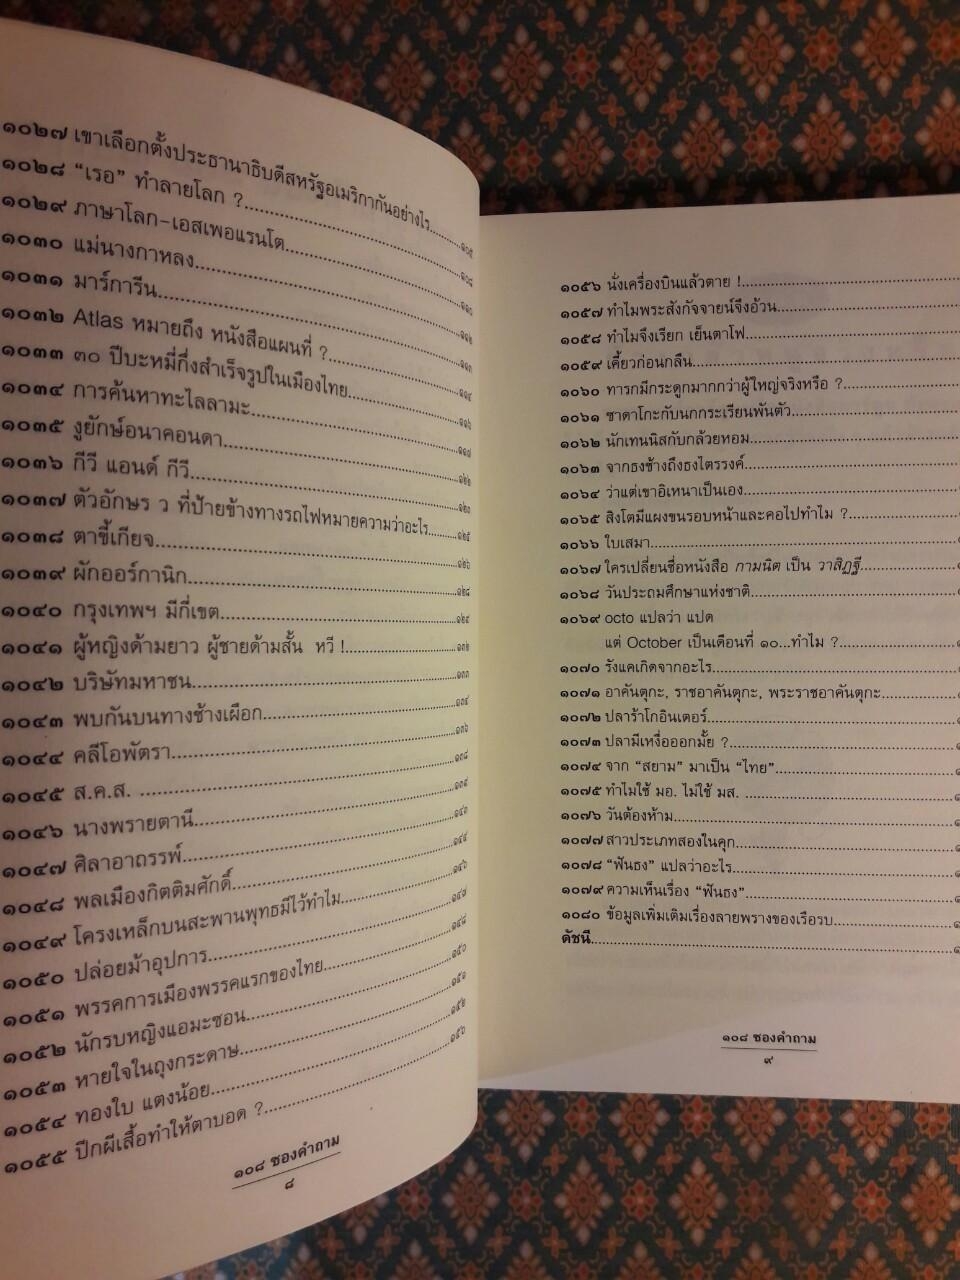 ๑๐๒๗ เขาเลือกตั้งประธานาธิบดีสหรัฐอเมริกากันอย่างไร..........๑๐๕
๑๐๒๘ “เรอ” ทำลายโลก ?..........๑๐๘
๑๐๒๙ ภาษาโลก-เอสเพอแรนโต..........๑๑๐
๑๐๓๐ แม่นางกาหลง..........๑๑๒
๑๐๓๑ มาร์การีน..........๑๑๓
๑๐๓๒ Atlas หมายถึง หนังสือแผนที่ ?..........๑๑๔
๑๐๓๓ ๓๐ ปีบะหมี่กึ่งสำเร็จรูปในเมืองไทย..........๑๑๖
๑๐๓๔ การค้นหาทะไลลามะ..........๑๑๗
๑๐๓๕ งูยักษ์อนาคอนดา..........๑๒๑
๑๐๓๖ กีวี แอนด์ กีวี..........๑๒๓
๑๐๓๗ ตัวอักษร ว ที่ป้ายข้างทางรถไฟหมายความว่าอะไร..........๑๒๕
๑๐๓๘ ตาขี้เกียจ..........๑๒๖
๑๐๓๙ ผักออร์กานิก..........๑๒๘
๑๐๔๐ กรุงเทพฯ มีกี่เขต..........๑๒๙
๑๐๔๑ ผู้หญิงด้ามยาว ผู้ชายด้ามสั้น หวี !..........๑๓๒
๑๐๔๒ บริษัทมหาชน..........๑๓๓
๑๐๔๓ พบกันบนทางช้างเผือก..........๑๓๔
๑๐๔๔ คลีโอพัตรา..........๑๓๖
๑๐๔๕ ส.ค.ส. ..........๑๓๘
๑๐๔๖ นางพรายตานี..........๑๓๙
๑๐๔๗ ศิลาอาถรรพ์..........๑๔๑
๑๐๔๘ พลเมืองกิตติมศักดิ์..........๑๔๔
๑๐๔๙ โครงเหล็กบนสะพานพุทธมีไว้ทำไม..........๑๔๖
๑๐๕๐ ปล่อยม้าอุปการ..........๑๔๗
๑๐๕๑ พรรคการเมืองพรรคแรกของไทย..........๑๔๘
๑๐๕๒ นักรบหญิงแอมะซอน..........๑๕๐
๑๐๕๓ หายใจในถุงกระดาษ..........๑๕๑
๑๐๕๔ ทองใบ แตงน้อย..........๑๕๒
๑๐๕๕ ปีกผีเสื้อทำให้ตาบอด ?..........๑๕๖
๑๐๘ ซองคำถาม
๘
๑๐๕๖ นั่งเครื่องบินแล้วตาย !..........
๑๐๕๗ ทำไมพระสังกัจจายน์จึงอ้วน..........
๑๐๕๘ ทำไมจึงเรียก เย็นตาโฟ..........
๑๐๕๙ เคี้ยวก่อนกลืน..........
๑๐๖๐ ทารกมีกระดูกมากกว่าผู้ใหญ่จริงหรือ ?..........
๑๐๖๑ ซาดาโกะกับนกกระเรียนพันตัว..........
๑๐๖๒ นักเทนนิสกับกล้วยหอม..........
๑๐๖๓ จากธงช้างถึงธงไตรรงค์..........
๑๐๖๔ ว่าแต่เขาอิเหนาเป็นเอง..........
๑๐๖๕ สิงโตมีแผงขนรอบหน้าและคอไปทำไม ?..........
๑๐๖๖ ใบเสมา..........
๑๐๖๗ ใครเปลี่ยนชื่อหนังสือ กามนิต เป็น วาสิฏฐี..........
๑๐๖๘ วันประถมศึกษาแห่งชาติ..........
๑๐๖๙ octo แปลว่า แปด
แต่ October เป็นเดือนที่ ๑๐...ทำไม ?..........
๑๐๗๐ รังแคเกิดจากอะไร..........
๑๐๗๑ อาคันตุกะ, ราชอาคันตุกะ, พระราชอาคันตุกะ..........
๑๐๗๒ ปลาร้าโกอินเตอร์..........
๑๐๗๓ ปลามีเหงื่อออกมั้ย ?..........
๑๐๗๔ จาก “สยาม” มาเป็น “ไทย”..........
๑๐๗๕ ทำไมใช้ มอ. ไม่ใช้ มส. ..........
๑๐๗๖ วันต้องห้าม..........
๑๐๗๗ สาวประเภทสองในคุก..........
๑๐๗๘ “ฟันธง” แปลว่าอะไร..........
๑๐๗๙ ความเห็นเรื่อง “ฟันธง”..........
๑๐๘๐ ข้อมูลเพิ่มเติมเรื่องลายพรางของเรือรบ..........
ดัชนี..........
๑๐๘ ซองคำถาม
๙